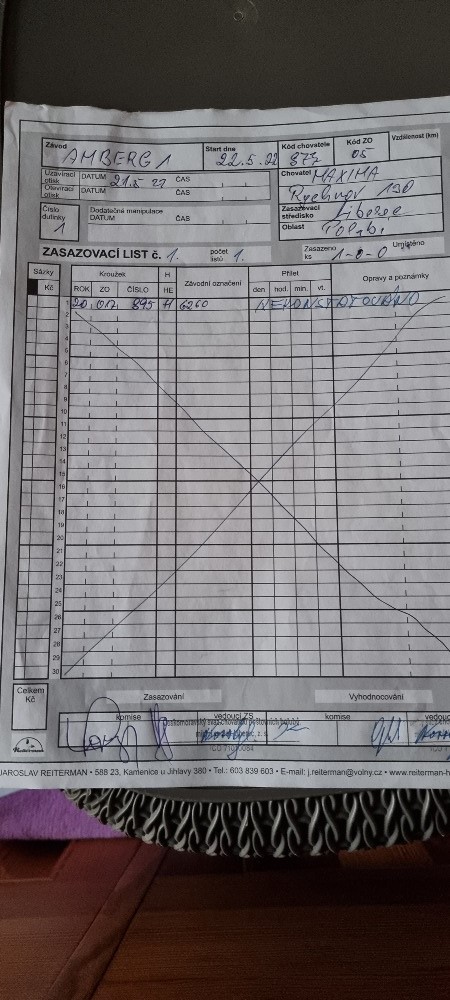 Závod AMBERG 1
Start dne 22.5.22
Kód chovatele 873
Kód ZO 05
Vzdálenost (km)
Uzavírací otisk DATUM 21.5.22 ČAS
Otevírací otisk DATUM ČAS
Chovatel MAXIMA
Rychnov 190
Číslo dutinky 1
Dodatečná manipulace
DATUM ČAS
Zasazovací středisko Liberec
Oblast
ZASAZOVACÍ LIST č. 1.
počet listů 1.
Zasazeno ks 1-0-0
Umístěno
Sázky
Kč
Kroužek
H
HE
Závodní označení
Přílet
Opravy a poznámky
ROK ZO ČÍSLO
den hod. min. vt.
1 20 017 895 H 6260 NEKONSTATOVÁNO
2
3
4
5
6
7
8
9
10
11
12
13
14
15
16
17
18
19
20
21
22
23
24
25
26
27
28
29
30
Celkem Kč
Zasazování
Vyhodnocování
komise
vedoucí ZS
komise
vedouc
Reiterman
JAROSLAV REITERMAN • 588 23, Kamenice u Jihlavy 380 • Tel.: 603 839 603 • E-mail: j.reiterman@volny.cz • www.reiterman-h